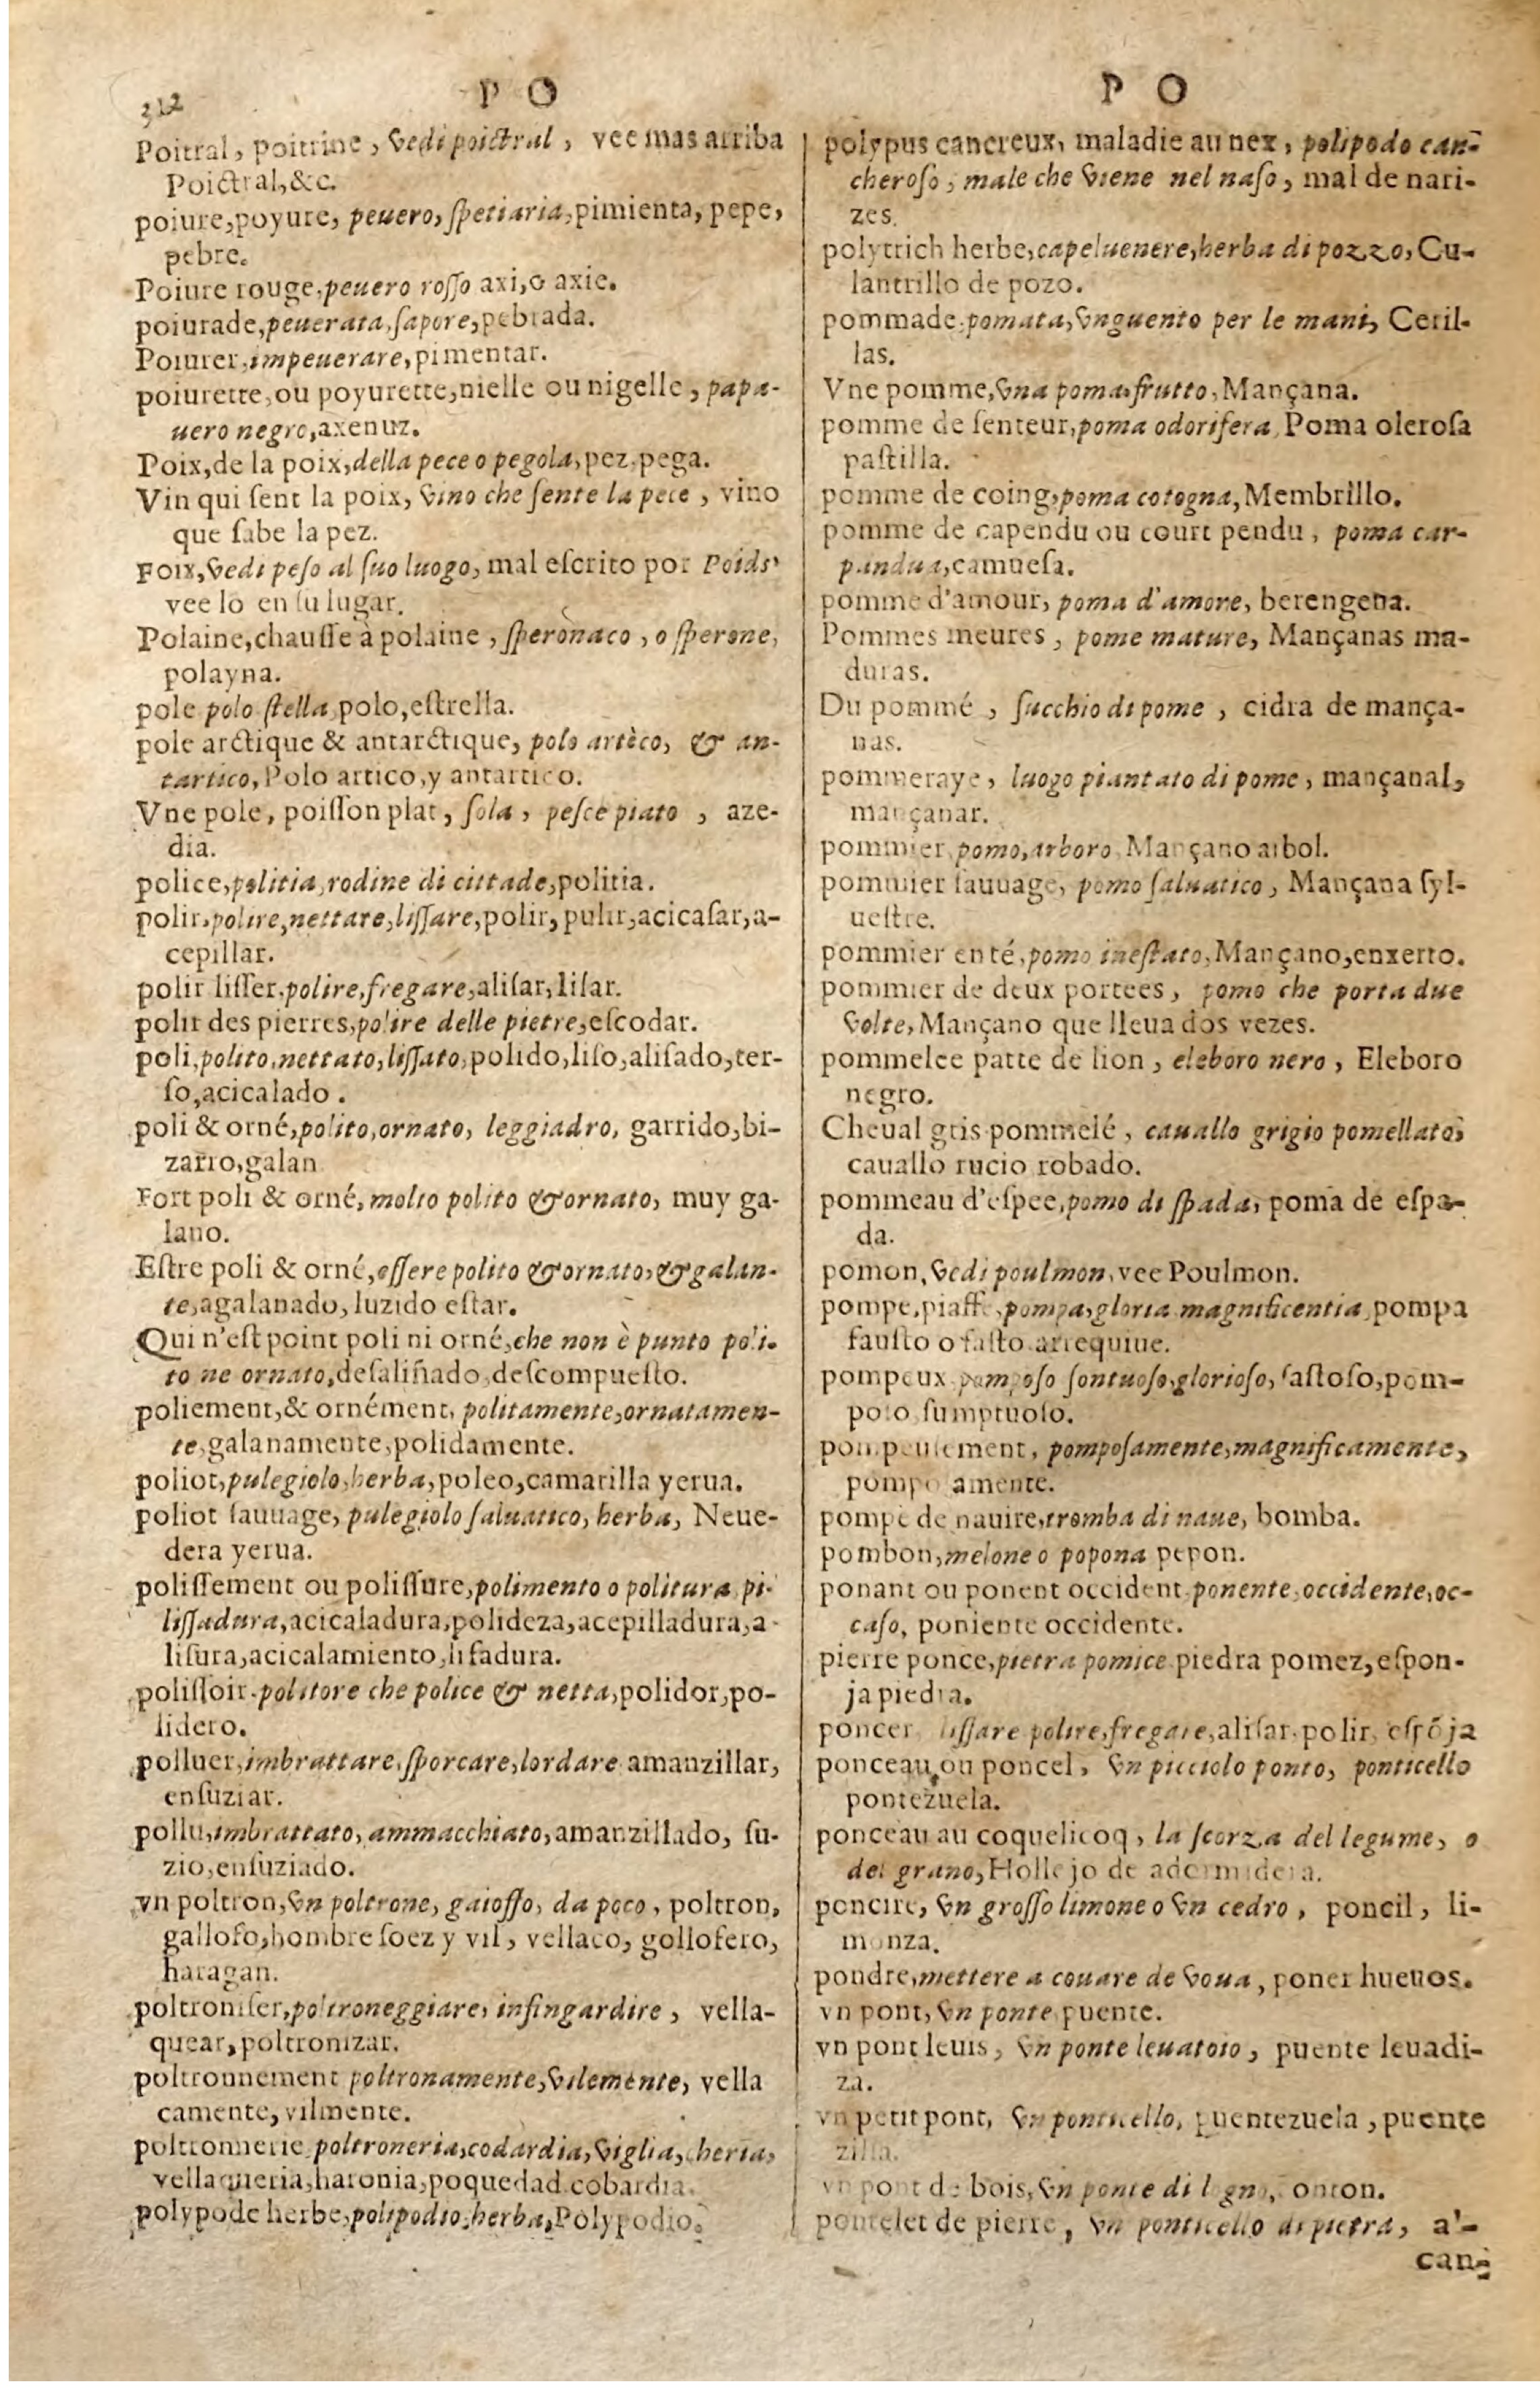 312
P O
Poitral, poitrine, vedi poictral, vee mas arriba
Poictral, &c.
poiure, poyure, peuero, ſpetiaria, pimienta, pepe,
pebre.
Poiure rouge, peuero roſſo axi, o axie.
poiurade, peuerata, ſapore, pebrada.
Poiurer, impeuerare, pimentar.
poiurette, ou poyurette, nielle ou nigelle, papa-
uero negro, axenuz.
Poix, de la poix, della pece o pegola, pez, pega.
Vin qui ſent la poix, vino che ſente la pece, vino
que ſabe la pez.
Foix, vedi peſo al ſuo luogo, mal eſcrito por Poids'
vee lo en ſu lugar.
Polaine, chauſſe à polaine, ſperonaco, o ſperone,
polayna.
pole polo ſtella polo, eſtrella.
pole arctique & antarctique, polo artèco, & an-
tartico, Polo artico, y antartico.
Vne pole, poiſſon plat, ſola, peſce piato, aze-
dia.
police, politia, rodine di cittade, politia.
polir, polire, nettare, liſſare, polir, pulir, acicaſar, a-
cepillar.
polir liſſer, polire, fregare, aliſar, liſar.
polir des pierres, polire delle pietre, eſcodar.
poli, polito, nettato, liſſato, polido, liſo, aliſado, ter-
ſo, acicalado.
poli & orné, polito, ornato, leggiadro, garrido, bi-
zarro, galan
Fort poli & orné, molto polito & ornato, muy ga-
lano.
Eſtre poli & orné, eſſere polito & ornato, & galan-
te, agalanado, luzido eſtar.
Qui n'eſt point poli ni orné, che non è punto poli-
to ne ornato, deſaliñado, deſcompueſto.
poliement, & ornément, politamente, ornatamen-
te, galanamente, polidamente.
poliot, pulegiolo, herba, poleo, camarilla yerua.
poliot ſauuage, pulegiolo ſaluatico, herba, Neue-
dera yerua.
poliſſement ou poliſſure, polimento o politura pi-
liſſadura, acicaladura, polideza, acepilladura, a-
liſura, acicalamiento, liſadura.
poliſſoir. politore che police & netta, polidor, po-
lidero.
polluer, imbrattare, ſporcare, lordare amanzillar,
enſuziar.
pollu, imbrattato, ammacchiato, amanzillado, ſu-
zio, enſuziado.
vn poltron, vn poltrone, gaioffo, da poco, poltron,
gallofo, hombre ſoez y vil, vellaco, gollofero,
haragan.
poltroniſer, poltroneggiare, infingardire, vella-
quear, poltronizar.
poltronnement poltronamente, vilemente, vella
camente, vilmente.
poltronnerie poltroneria, codardia, vigliacheria,
vellaqueria, haronia, poquedad cobardia.
polypode herbe, polipodio, herba, Polypodio.
P O
polypus cancreux, maladie au nex, polipodo can-
cheroſo, male che viene nel naſo, mal de nari-
zes.
polytrich herbe, capeluenere, herba di pozzo, Cu-
lantrillo de pozo.
pommade, pomata, vnguento per le mani, Ceril-
las.
Vne pomme, vna poma, frutto, Mançana.
pomme de ſenteur, poma odorifera, Poma oleroſa
paſtilla.
pomme de coing, poma cotogna, Membrillo.
pomme de capendu ou court pendu, poma car-
pandua, camueſa.
pomme d'amour, poma d'amore, berengena.
Pommes meures, pome mature, Mançanas ma-
duras.
Du pommé, ſucchio di pome, cidra de mança-
nas.
pommeraye, luogo piantato di pome, mançanal,
mançanar.
pommier pomo, arboro Mançano arbol.
pommier ſauuage, pomo ſaluatico, Mançana ſyl-
ueſtre.
pommier enté, pomo ineſtato, Mançano, enxerto.
pommier de deux portees, pomo che porta due
volte, Mançano que lleua dos vezes.
pommelee patte de lion, eleboro nero, Eleboro
negro.
Cheual gris pommelé, cauallo grigio pomellato,
cauallo rucio robado.
pommeau d'eſpee, pomo di ſpada, poma de eſpa-
da.
pomon, vedi poulmon, vee Poulmon.
pompe, piaffe, pompa, gloria magnificentia pompa
fauſto o faſto arrequiue.
pompeux pompoſo ſontuoſo, glorioſo, faſtoſo, pom-
poſo ſumptuoſo.
pompeuſement, pompoſamente, magnificamente,
pompoſamente.
pompe de nauire, tromba di naue, bomba.
pombon, melone o popona pepon.
ponant ou ponent occident ponente, occidente, oc-
caſo, poniente occidente.
pierre ponce, pietra pomice piedra pomez, eſpon-
ja piedra.
poncer liſſare polire, fregare, aliſar. polir, eſpōja
ponceau, ou poncel, vn picciolo ponto, ponticello
pontezuela.
ponceau au coquelicoq, la ſcorza del legume, o
del grano, Hollejo de adormidera.
poncire, vn groſſo limone o vn cedro, poncil, li-
monza.
pondre, mettere a couare de voua, poner hueuos.
vn pont, vn ponte puente.
vn pont leuis, vn ponte leuatoio, puente leuadi-
za.
vn petit pont, vn ponticello, puentezuela, puente
zilla.
vn pont de bois, vn ponte di legno, onton.
pontelet de pierre, vn ponticello di pietra, a'-
can-